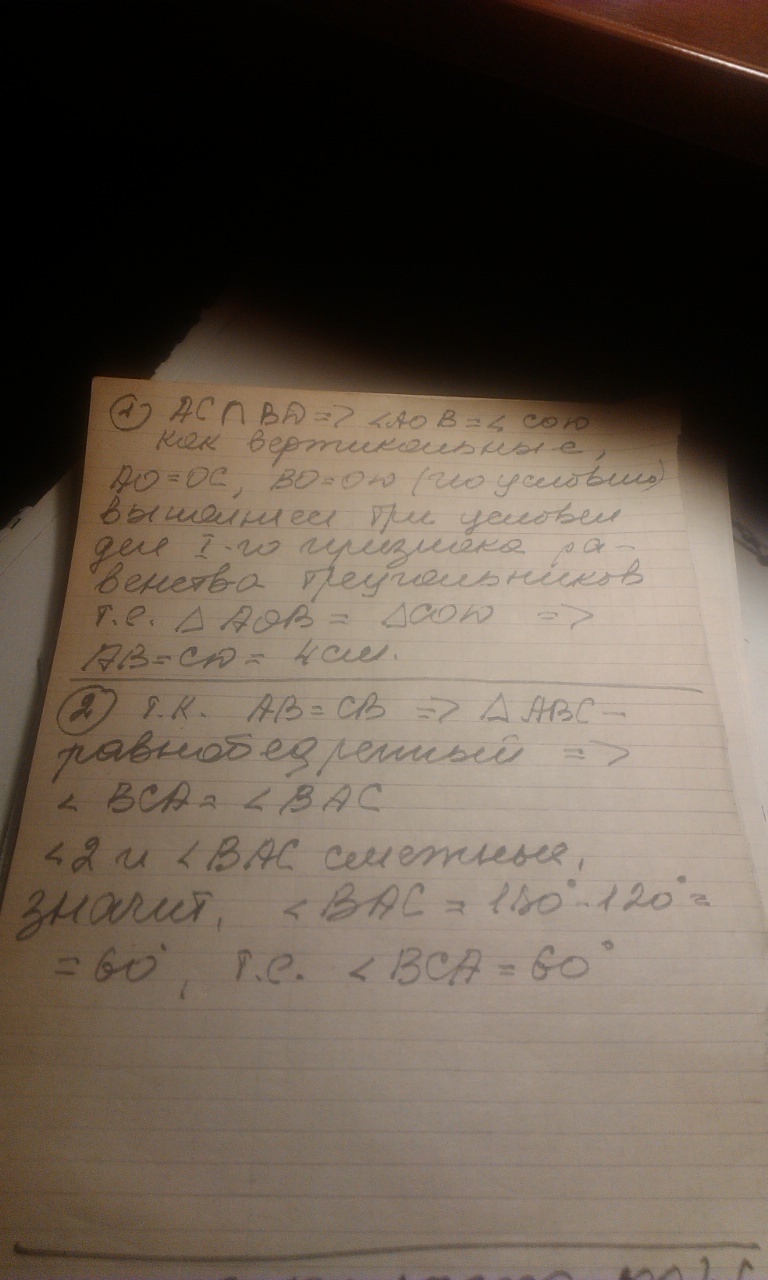 1) AC∩BD => <AOB=< COD
как вертикальные,
AO=OC, BO=OD (по условию)
выполнен три условия
для I-го признака ра-
венства треугольников
т.е. △ AOB = △COD =>
AB=CD= 4см.
2) Т.к. AB=CB => △ABC-
равнобедренный =>
< BCA= <BAC
<2 и <BAC смежные,
значит, <BAC = 180°-120°=
= 60°, т.е. <BCA=60°